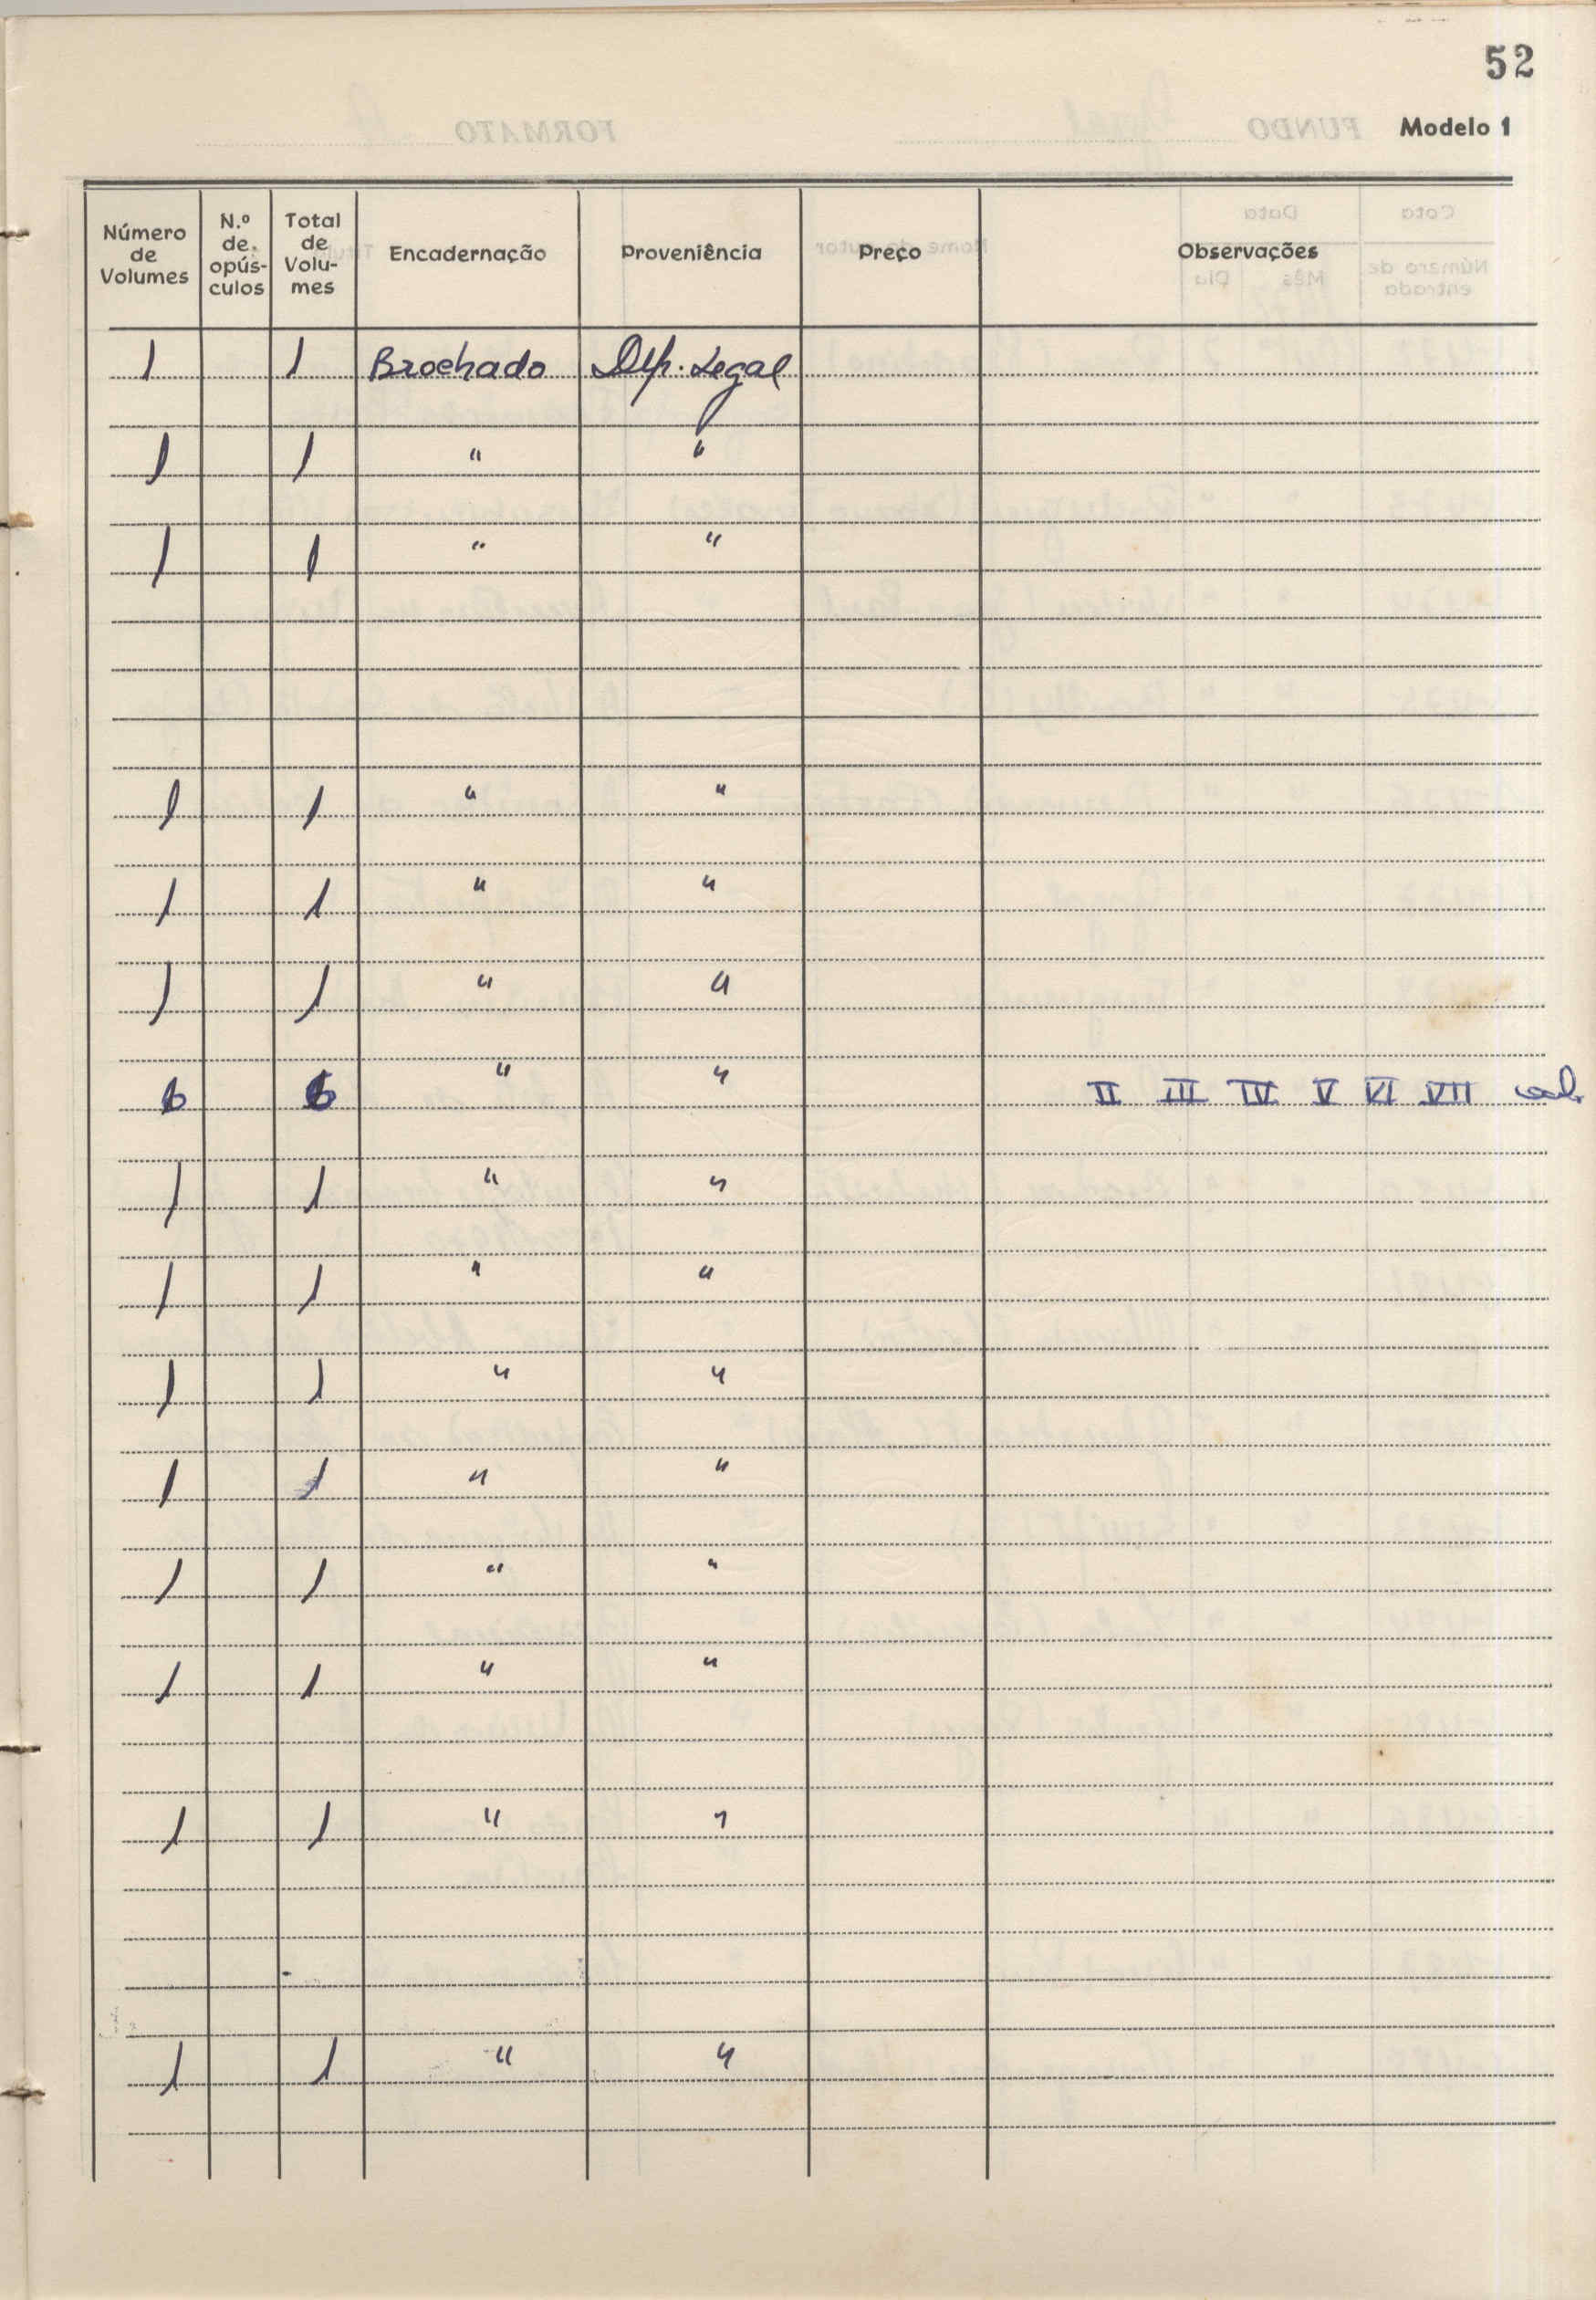 52
Modelo 1
Número de Volumes | N.º de opús-culos | Total de Volu-mes | Encadernação | Proveniência | Preço | Observações
1 | | 1 | Brochado | Dep. Legal
1 | | 1 | " | "
1 | | 1 | " | "
1 | | 1 | " | "
1 | | 1 | " | "
1 | | 1 | " | "
6 | | 6 | " | " | | II III IV V VI VII
1 | | 1 | " | "
1 | | 1 | " | "
1 | | 1 | " | "
1 | | 1 | " | "
1 | | 1 | " | "
1 | | 1 | " | "
1 | | 1 | " | "
1 | | 1 | " | "